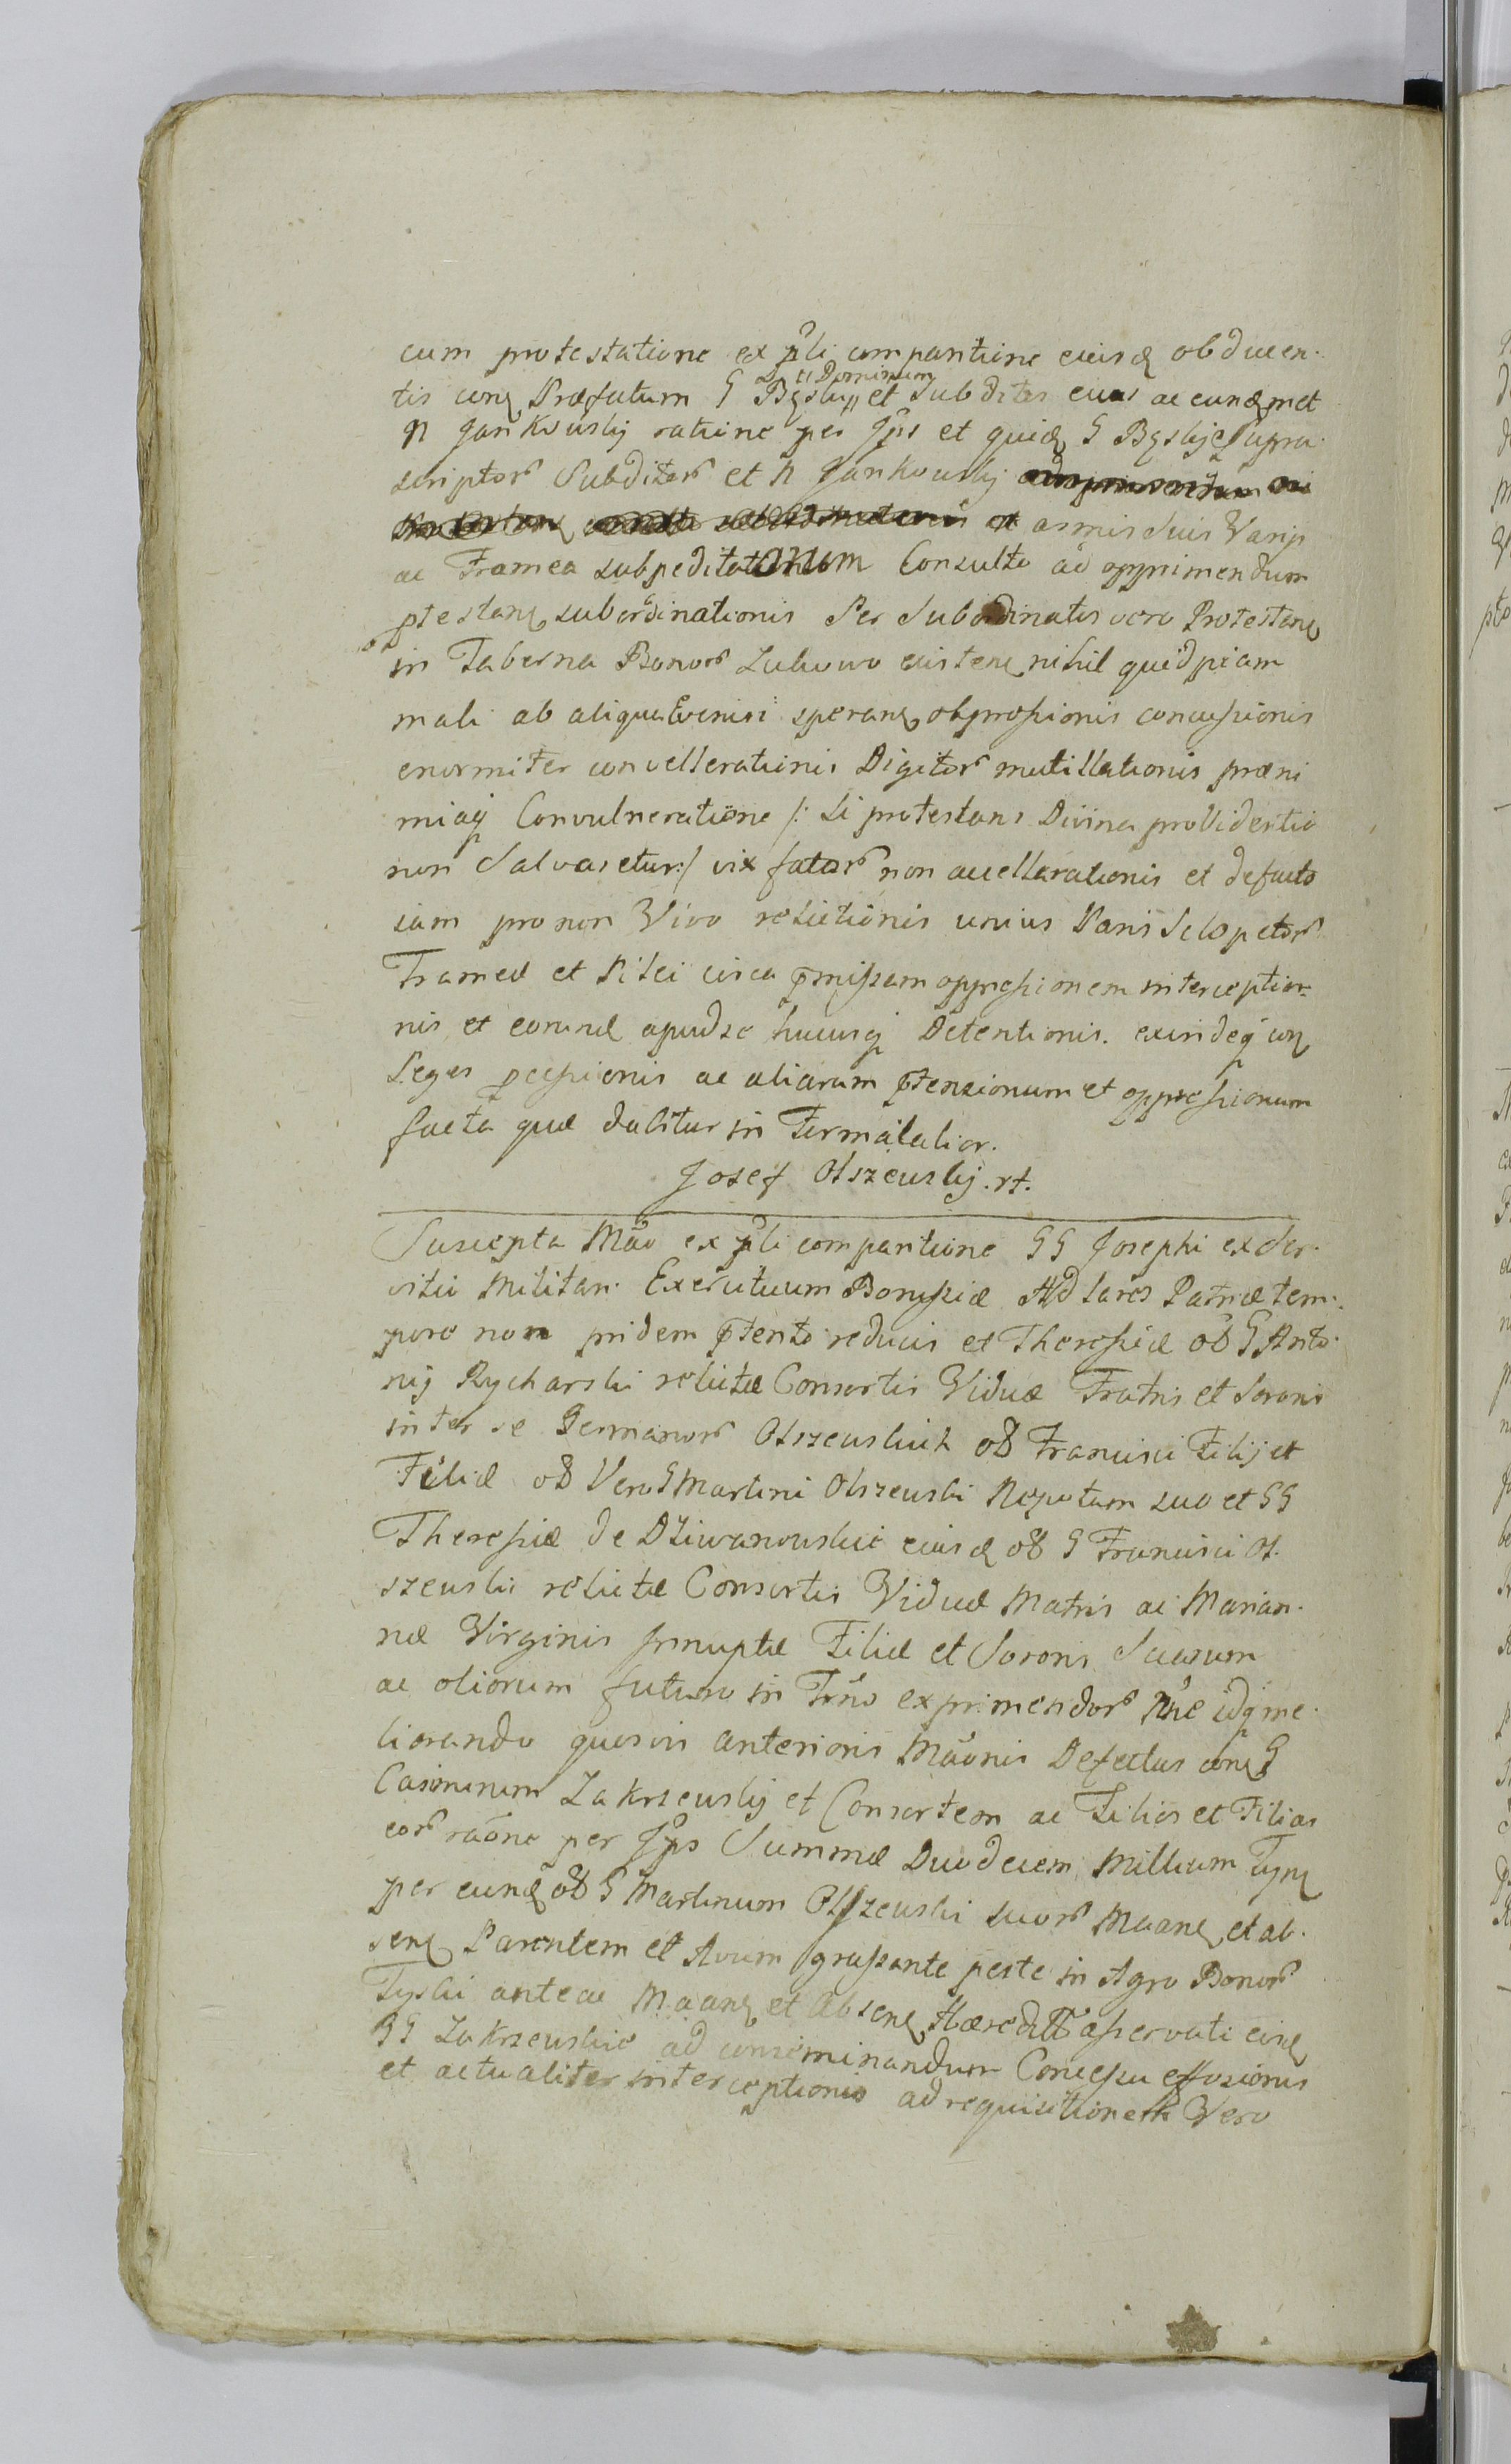 cum protestatione ex pͣli comparitione eiusd obducen
tis con Præfatum G Bęsky et Subditos eius ac eundmet
et Dominum
N Jankowsky ratione per Jps et quid G Bęskije Supra
scriptor Subditor et N Jankowsky
armis Suis Varijs
ac Framea subpeditationum Consulto ad opprimendum
ptestan subordinationis Per Subordinatos vero Protestan
in Taberna Bonor Lukowo existen nihil quidpiam
mali ab aliqua speran obgressionis concussionis
enormiter convellerationis Digitor mutillationis præni
miaq Convulneratione /: Si protestans Divina providentia
non Salvaretur :/ vix fator non avellarationis et defacto
iam pro non Vivo relictionis unius Paris Sclopetor
Frameæ et Pilei circa pmissam oppressionem interceptio
nis et eorund apud se hucusq Detentionis. exindeq con
Leges pcessionis ac aliarum ptensionum et oppressionum
facta quæ dabitur in Term latior.
Josef Olszewsky .rt.
Suscepta Mão ex pͣli comparitione GG Josephi ex Ser
vitio Militari Ad Lares Patriæ tem
pore non pridem ptento reducis et Theressiæ ob G Anto
nij Rycharski relictæ Consortis Viduæ Fratris et Sororis
inter se Germanor Olszewskich ob Francisci Filij et
Filiæ ob Vero G Martini Olszewski Nepotum suo et GG
Theressiæ de Dziwanowskie eiusd ob G Francisci Ol
szewski relictæ Consortis Viduæ Matris ac Marian
næ Virginis Innuptæ Filiæ et Sororis Suarum
ac aliorum futuro in Trno exprimendor Nne idq me
liorando quosvis anterioris Mãonis Defectus con G
Casimirum Zakrzewsky et Consortem ac Filios et Filias
eor rãone per Jps Summæ Duodecem Millium Tynf
per eund ob G Martinum Olszewski suor Maan et ab
sen Parentem et Avum grassante peste in Agro Bonor
Tyski antea Maan et Absen Hæredit asservati eisd
GG Zakrzewskie ad conseminandum Concessu effosionis
et actualiter interceptionis ad requisitionem Vero